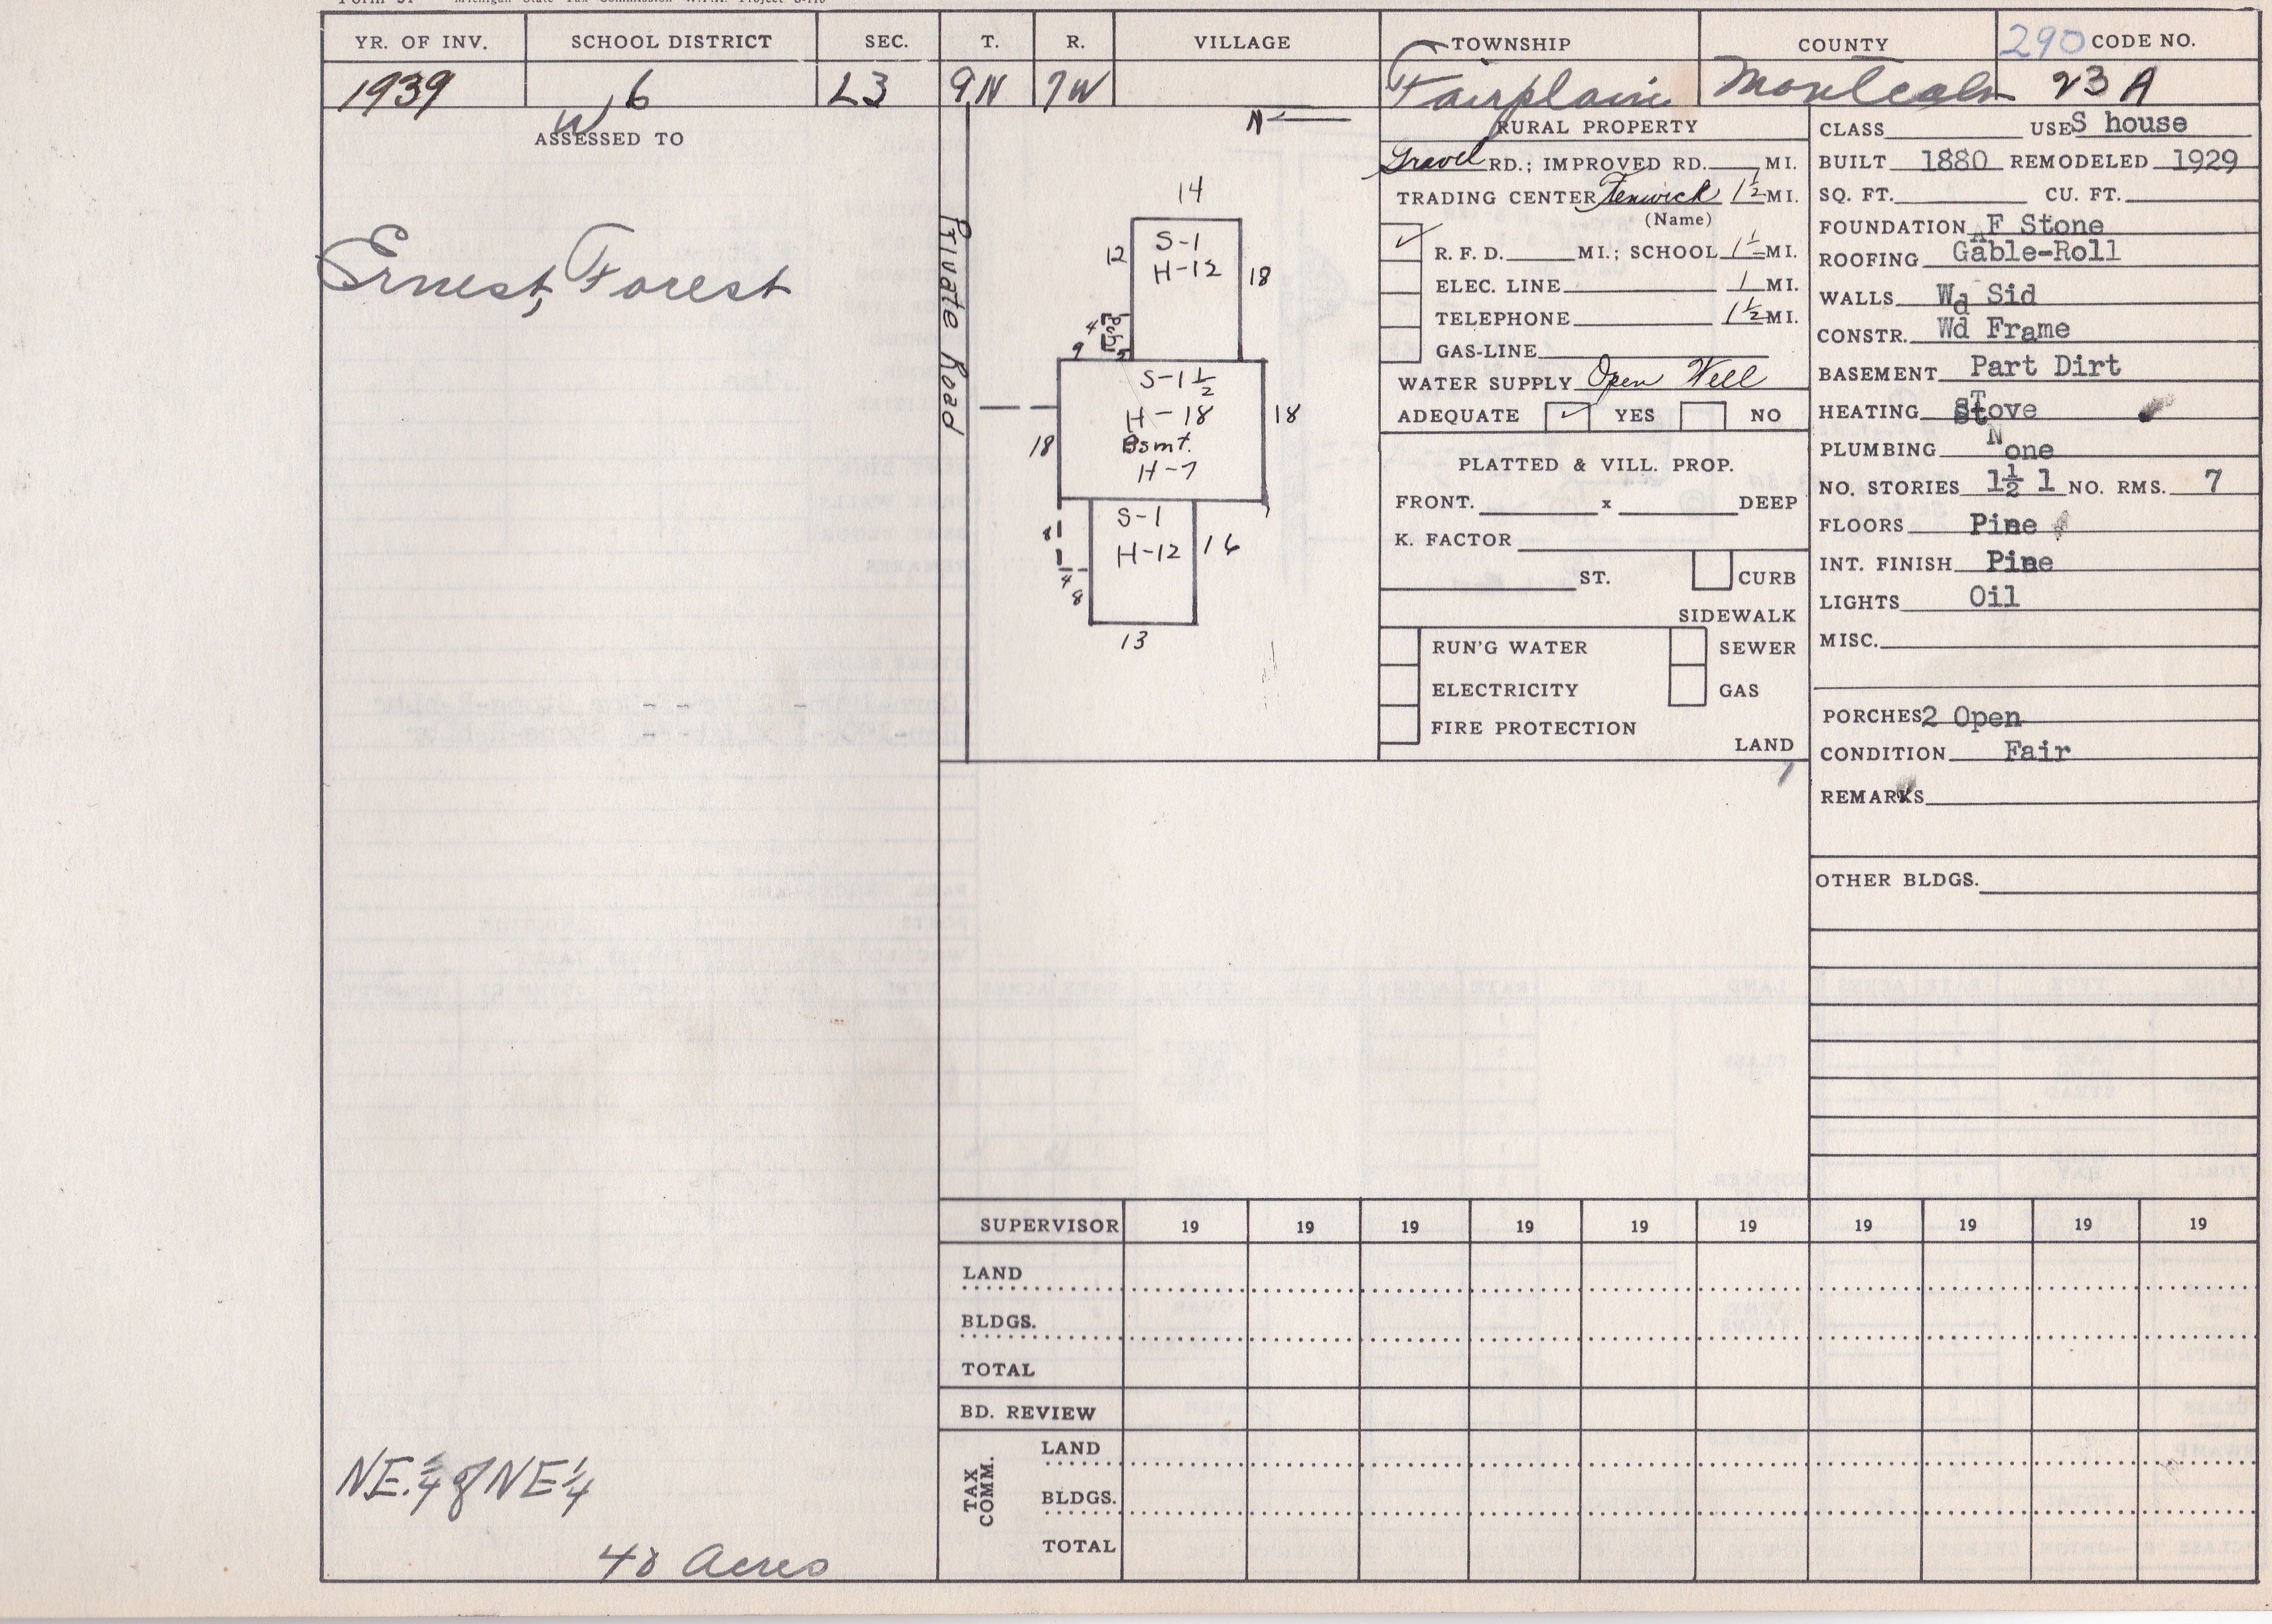 Michigan State Tax Commission W.P.A. Project S-110
YR. OF INV. SCHOOL DISTRICT SEC. T. R. VILLAGE TOWNSHIP COUNTY 290 CODE NO.
1939 6 23 9N 7W Fairplain Montcalm 23 A
W
ASSESSED TO
Ernest, Forest
NE.¼ of NE¼
40 Acres
N
Private Road
14
S-1
H-12
12
18
4
Pch
5
9
S-1½
H-18
Bsmt.
H-7
18
18
S-1
H-12
16
8
4
8
13
RURAL PROPERTY
Gravel RD.; IMPROVED RD. MI.
TRADING CENTER Fenwick 1½ MI.
(Name)
✓ R. F. D. MI.; SCHOOL MI.
ELEC. LINE 1 MI.
TELEPHONE 1½ MI.
GAS-LINE
WATER SUPPLY Open Well
ADEQUATE ✓ YES NO
PLATTED & VILL. PROP.
FRONT. x DEEP
K. FACTOR
ST. CURB
SIDEWALK
RUN'G WATER SEWER
ELECTRICITY GAS
FIRE PROTECTION
LAND
CLASS USE S house
BUILT 1880 REMODELED 1929
SQ. FT. CU. FT.
FOUNDATION F Stone
ROOFING Gable-Roll
WALLS Wd Sid
CONSTR. Wd Frame
BASEMENT Part Dirt
HEATING Stove
PLUMBING None
NO. STORIES 1½ 1 NO. RMS. 7
FLOORS Pine
INT. FINISH Pine
LIGHTS Oil
MISC.
PORCHES 2 Open
CONDITION Fair
REMARKS
OTHER BLDGS.
SUPERVISOR 19 19 19 19 19 19 19 19 19 19
LAND
BLDGS.
TOTAL
BD. REVIEW
TAX COMM.
LAND
BLDGS.
TOTAL